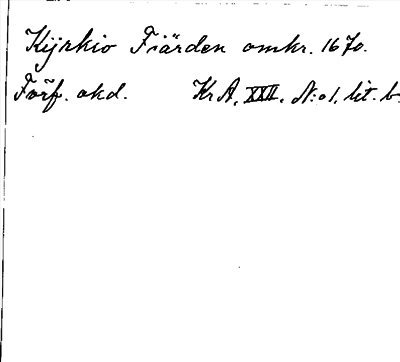 Kijrkio Fiärden omkr. 1670.
Förf. okd. Kr A. XXII. N:o 1. lit. b.